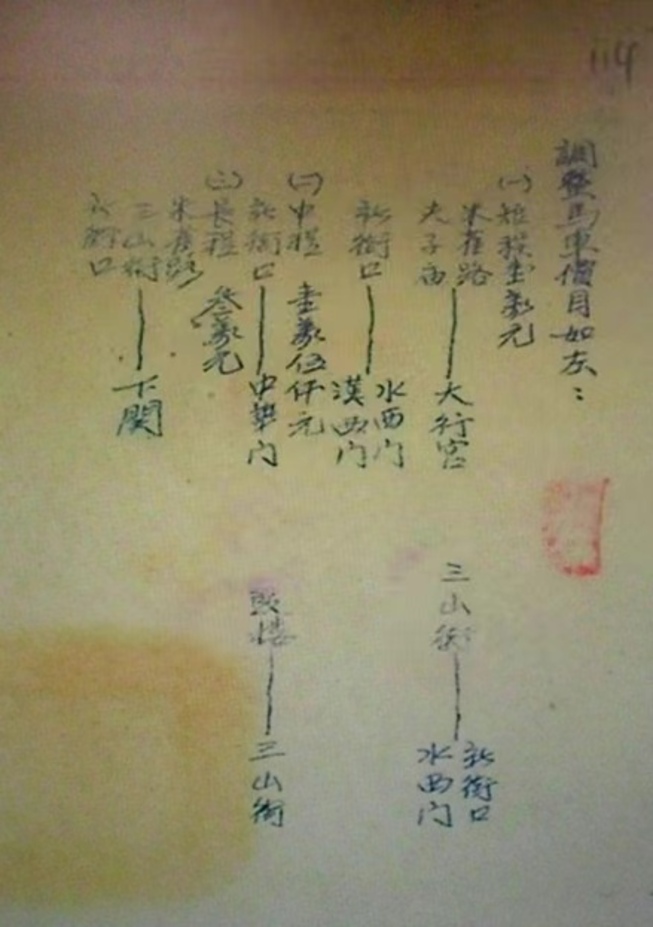 114
調整馬車價目如左：
(一)短程壹萬元
朱雀路
夫子庙——大行宫
三山街——新街口
水西门
新街口——水西门
漢西门
(二)中程 壹萬伍仟元
新街口——中華门
鼓楼——三山街
(三)長程 叁萬元
朱雀路
三山街——下関
新街口